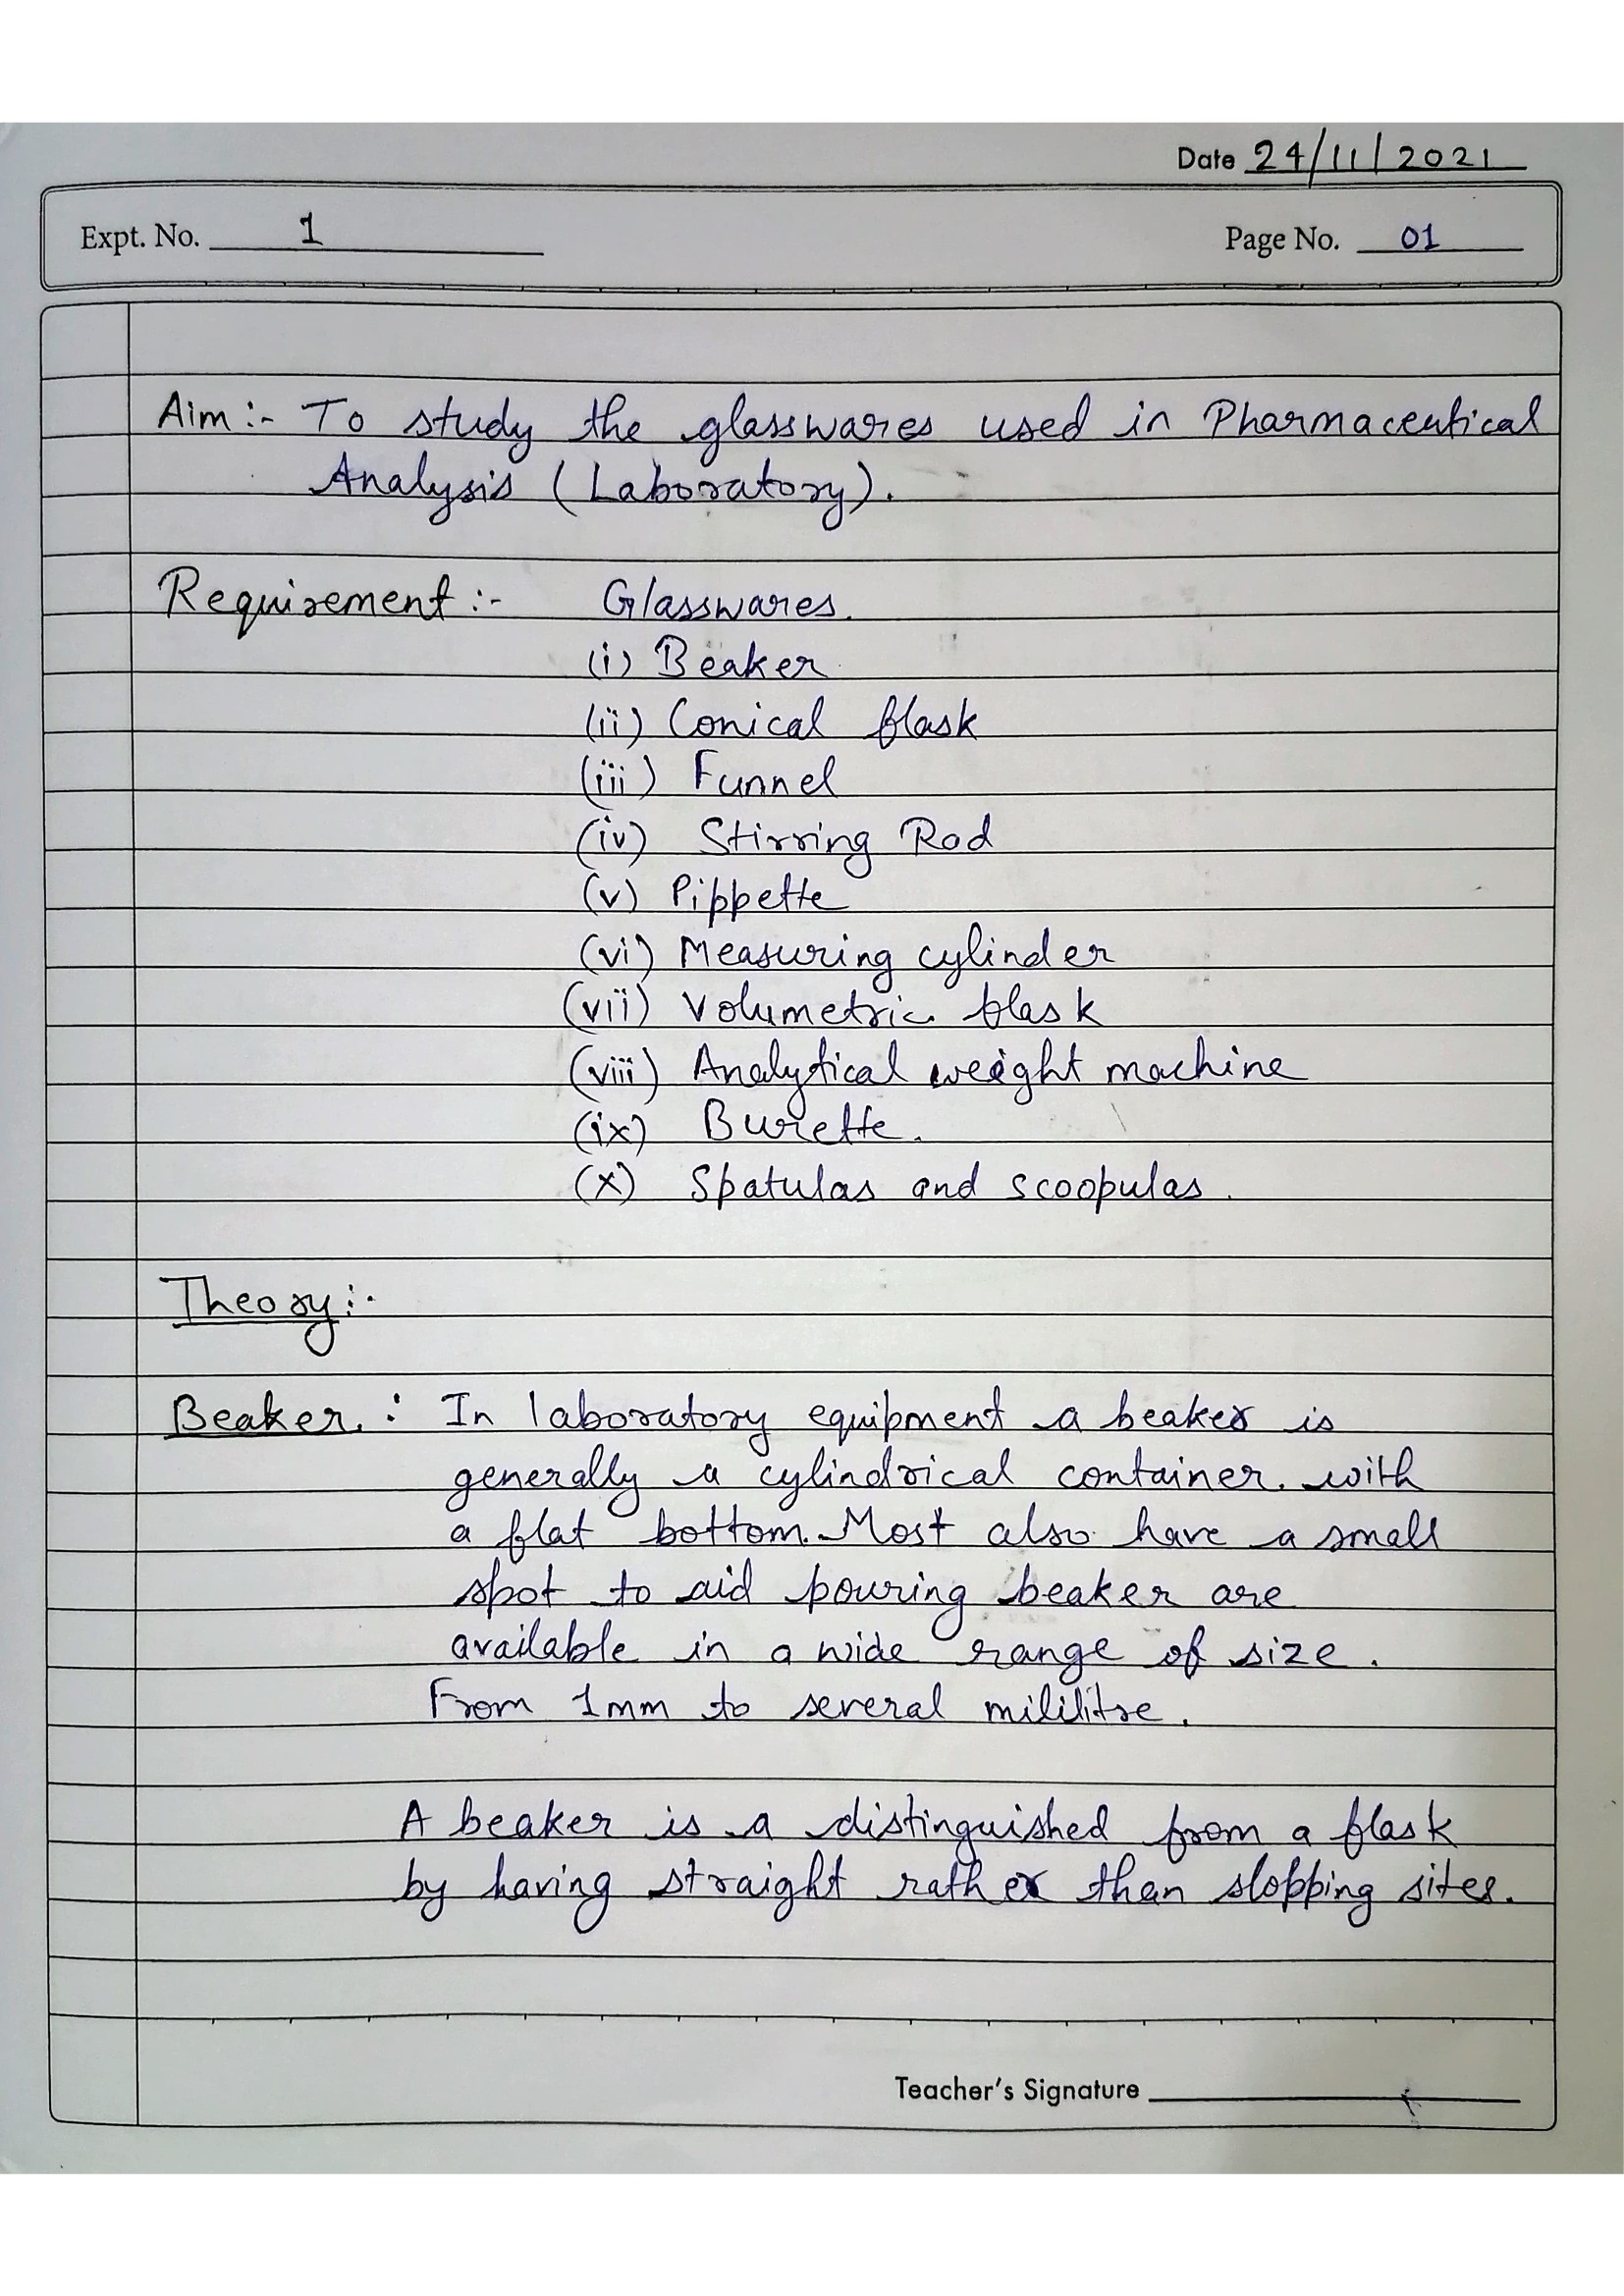 Date 24/11/2021
Expt. No. 1
Page No. 01
Aim :- To study the glasswares used in Pharmaceutical
Analysis (Laboratory).
Requirement :- Glasswares.
(i) Beaker
(ii) Conical flask
(iii) Funnel
(iv) Stirring Rod
(v) Pippette
(vi) Measuring cylinder
(vii) Volumetric flask
(viii) Analytical weight machine
(ix) Burette.
(x) Spatulas and scoopulas.
Theory :-
Beaker. : In laboratory equipment a beaker is
generally a cylindrical container. with
a flat bottom. Most also have a small
spot to aid pouring beaker are
available in a wide range of size.
From 1mm to several mililitre.
A beaker is a distinguished from a flask
by having straight rather than slopping sites.
Teacher's Signature